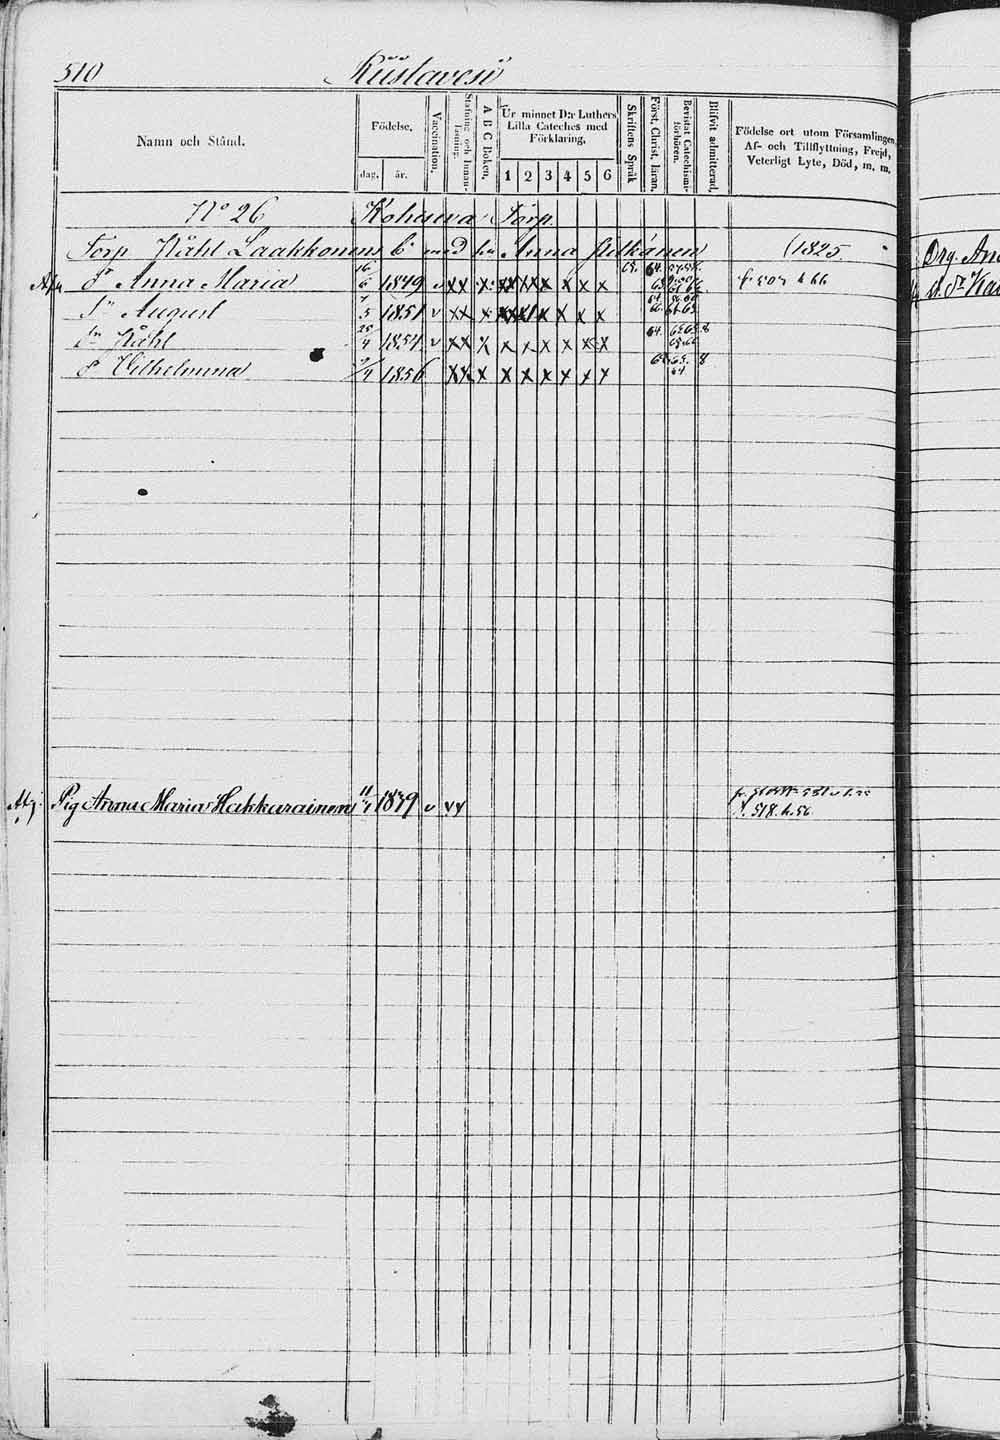 510 Kuslavesi
Namn och Stånd.
Födelse.
dag. år.
Vaccination.
Stafning och Innanläsning.
A B C Boken.
Ur minnet D:r Luthers
Lilla Cateches med
Förklaring,
1 2 3 4 5 6
Skriftens Språk
Först. Christ. läran.
Bevistat Catechismiförhören.
Blifvit admitterad.
Födelse ort utom Församlingen,
Af- och Tillflyttning, Frejd,
Veterligt Lyte, Död, m. m.
No 26 Kohuwa Torp.
Torp Påhl Laakkonens b: med hu Anna Pitkänen (1825
dr Anna Maria 16/6 1849 v xx x xx xx x x x x
Sn August 7/5 1851 v xx x x x x x
Sn Påhl 25/4 1854 v xx x x x x x x x 8
dr Vilhelmina 9/4 1856 xx x x x x x x x 8
Pig Anna Maria Hakkarainen 11/7 1819 v xx
f. 518. h. 56.
Drg. An